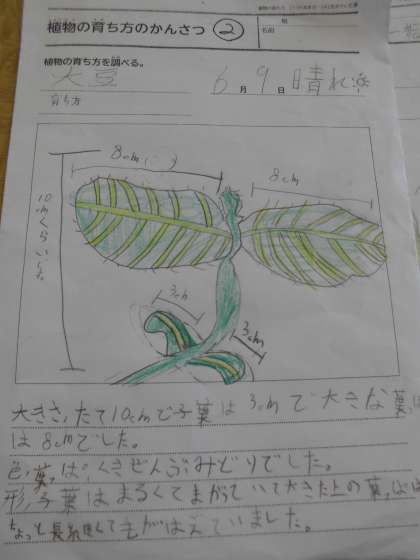 植物の育ち方のかんさつ ②
組
名前
植物の育ち方を調べる。
大豆
育ち方
6月9日 晴れ
8cm
8cm
10cmくらいでした
3cm
3cm
大きさ、たて10cmで子葉は3cmで大きな葉は
は8cmでした。
色、葉、は、くきぜんぶみどりでした。
形、子葉はまるくてまがっていて大きた上の葉、は
ちょっと長細くて毛がはえていました。